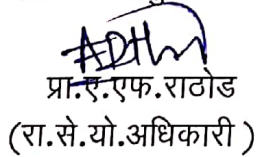 प्रा.ए.एफ.राठोड
(रा.से.यो.अधिकारी )